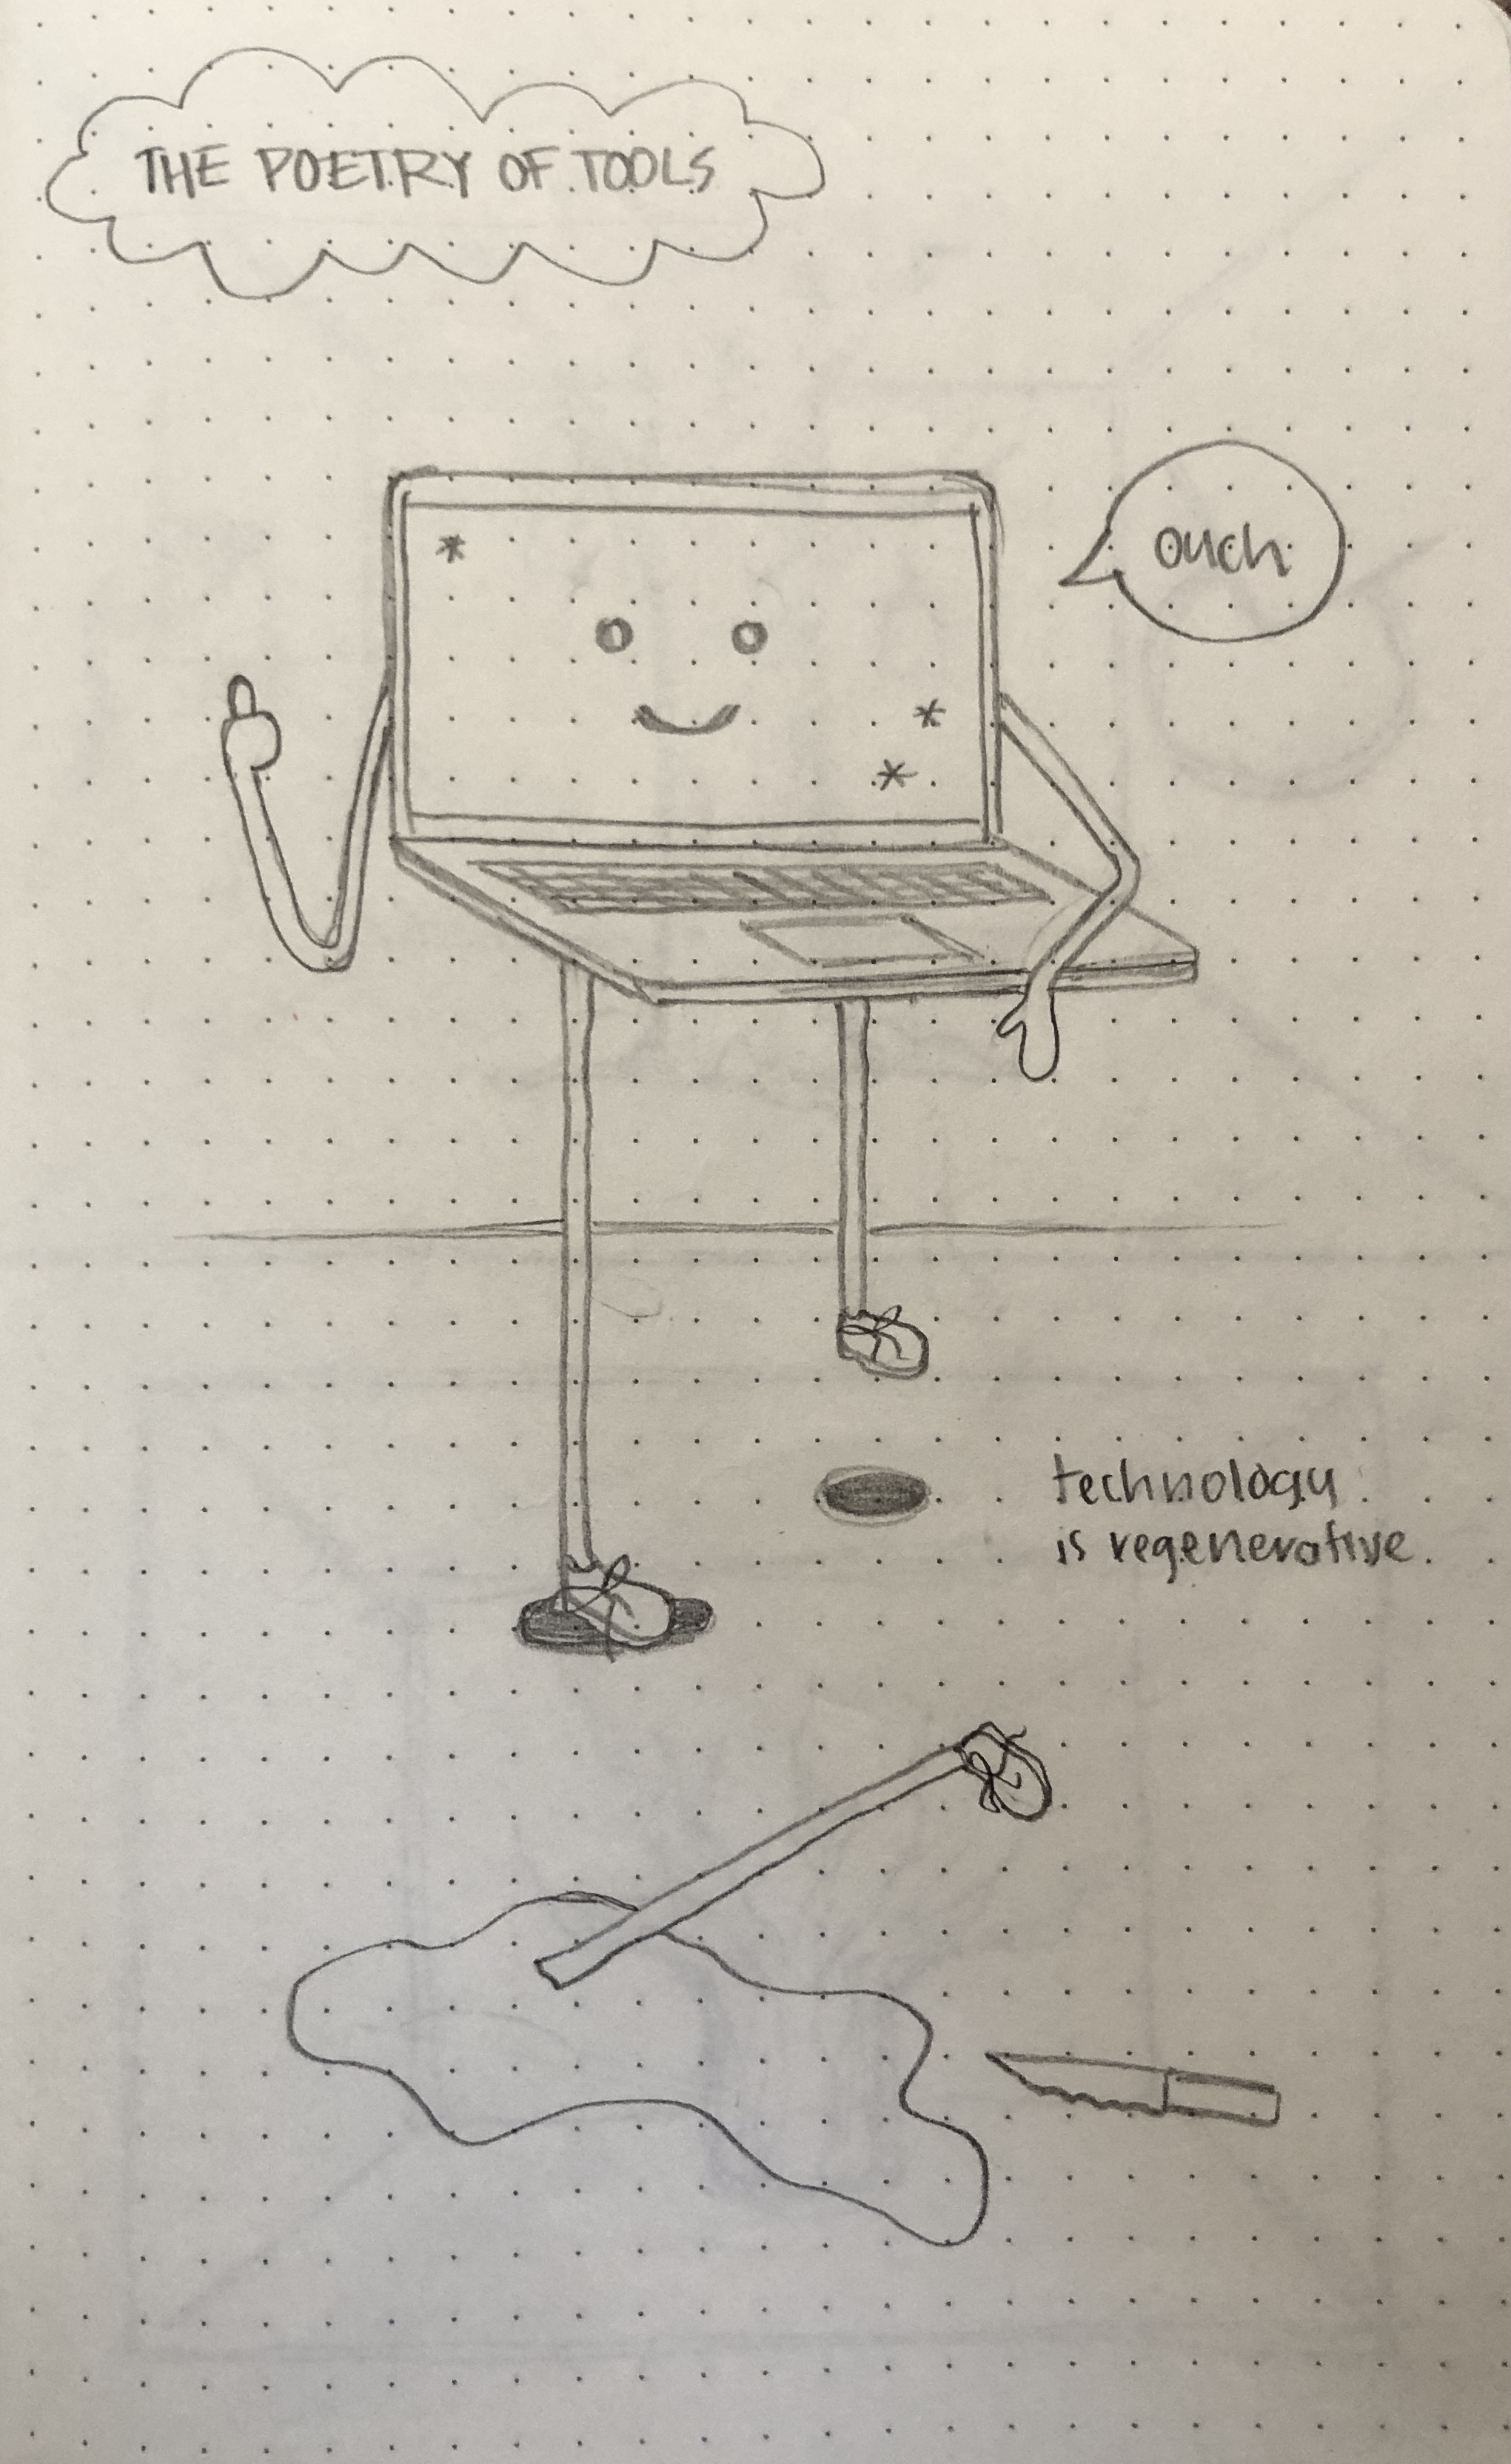 THE POETRY OF TOOLS
ouch
technology
is regenerative